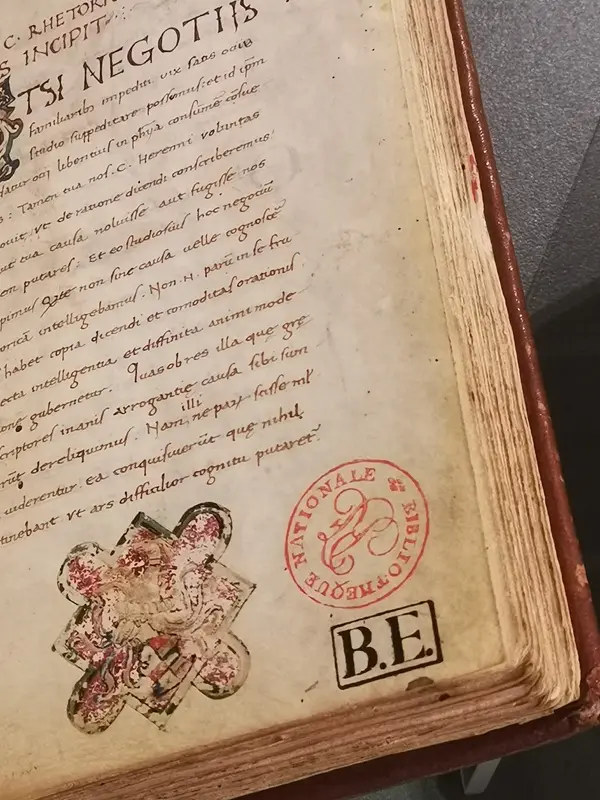 C. RHETORI
S INCIPIT
TSI NEGOTIIS
familiaribꝫ impediti vix satis ociū
studio suppeditare possumus: et id ipm
datur ocij libentius in phya consumē cōsue
: Tamen tua nos. C. Herenni voluntas
ouit. vt de ratione dicendi conscriberemus:
ut tua causa noluisse aut fugisse nos
em putares. Et eo studiosius hoc negociū
pimus te non sine causa uelle cognoscē
oricā intelligebamus. Non .N. parū in se fru
habet copia dicendi et comoditas orationis
ecta intelligentia et diffinita animi mode
one gubernetur. Quas ob res illa quę grę
criptores inanis arrogantię causa sibi sum
illi
rūt dereliquimus. Nam ne scisse
uiderentur. ea conquisiuerūt quę nihil
tinebant. vt ars difficilior cognitu putaret
BIBLIOTHEQUE NATIONALE
B.E.